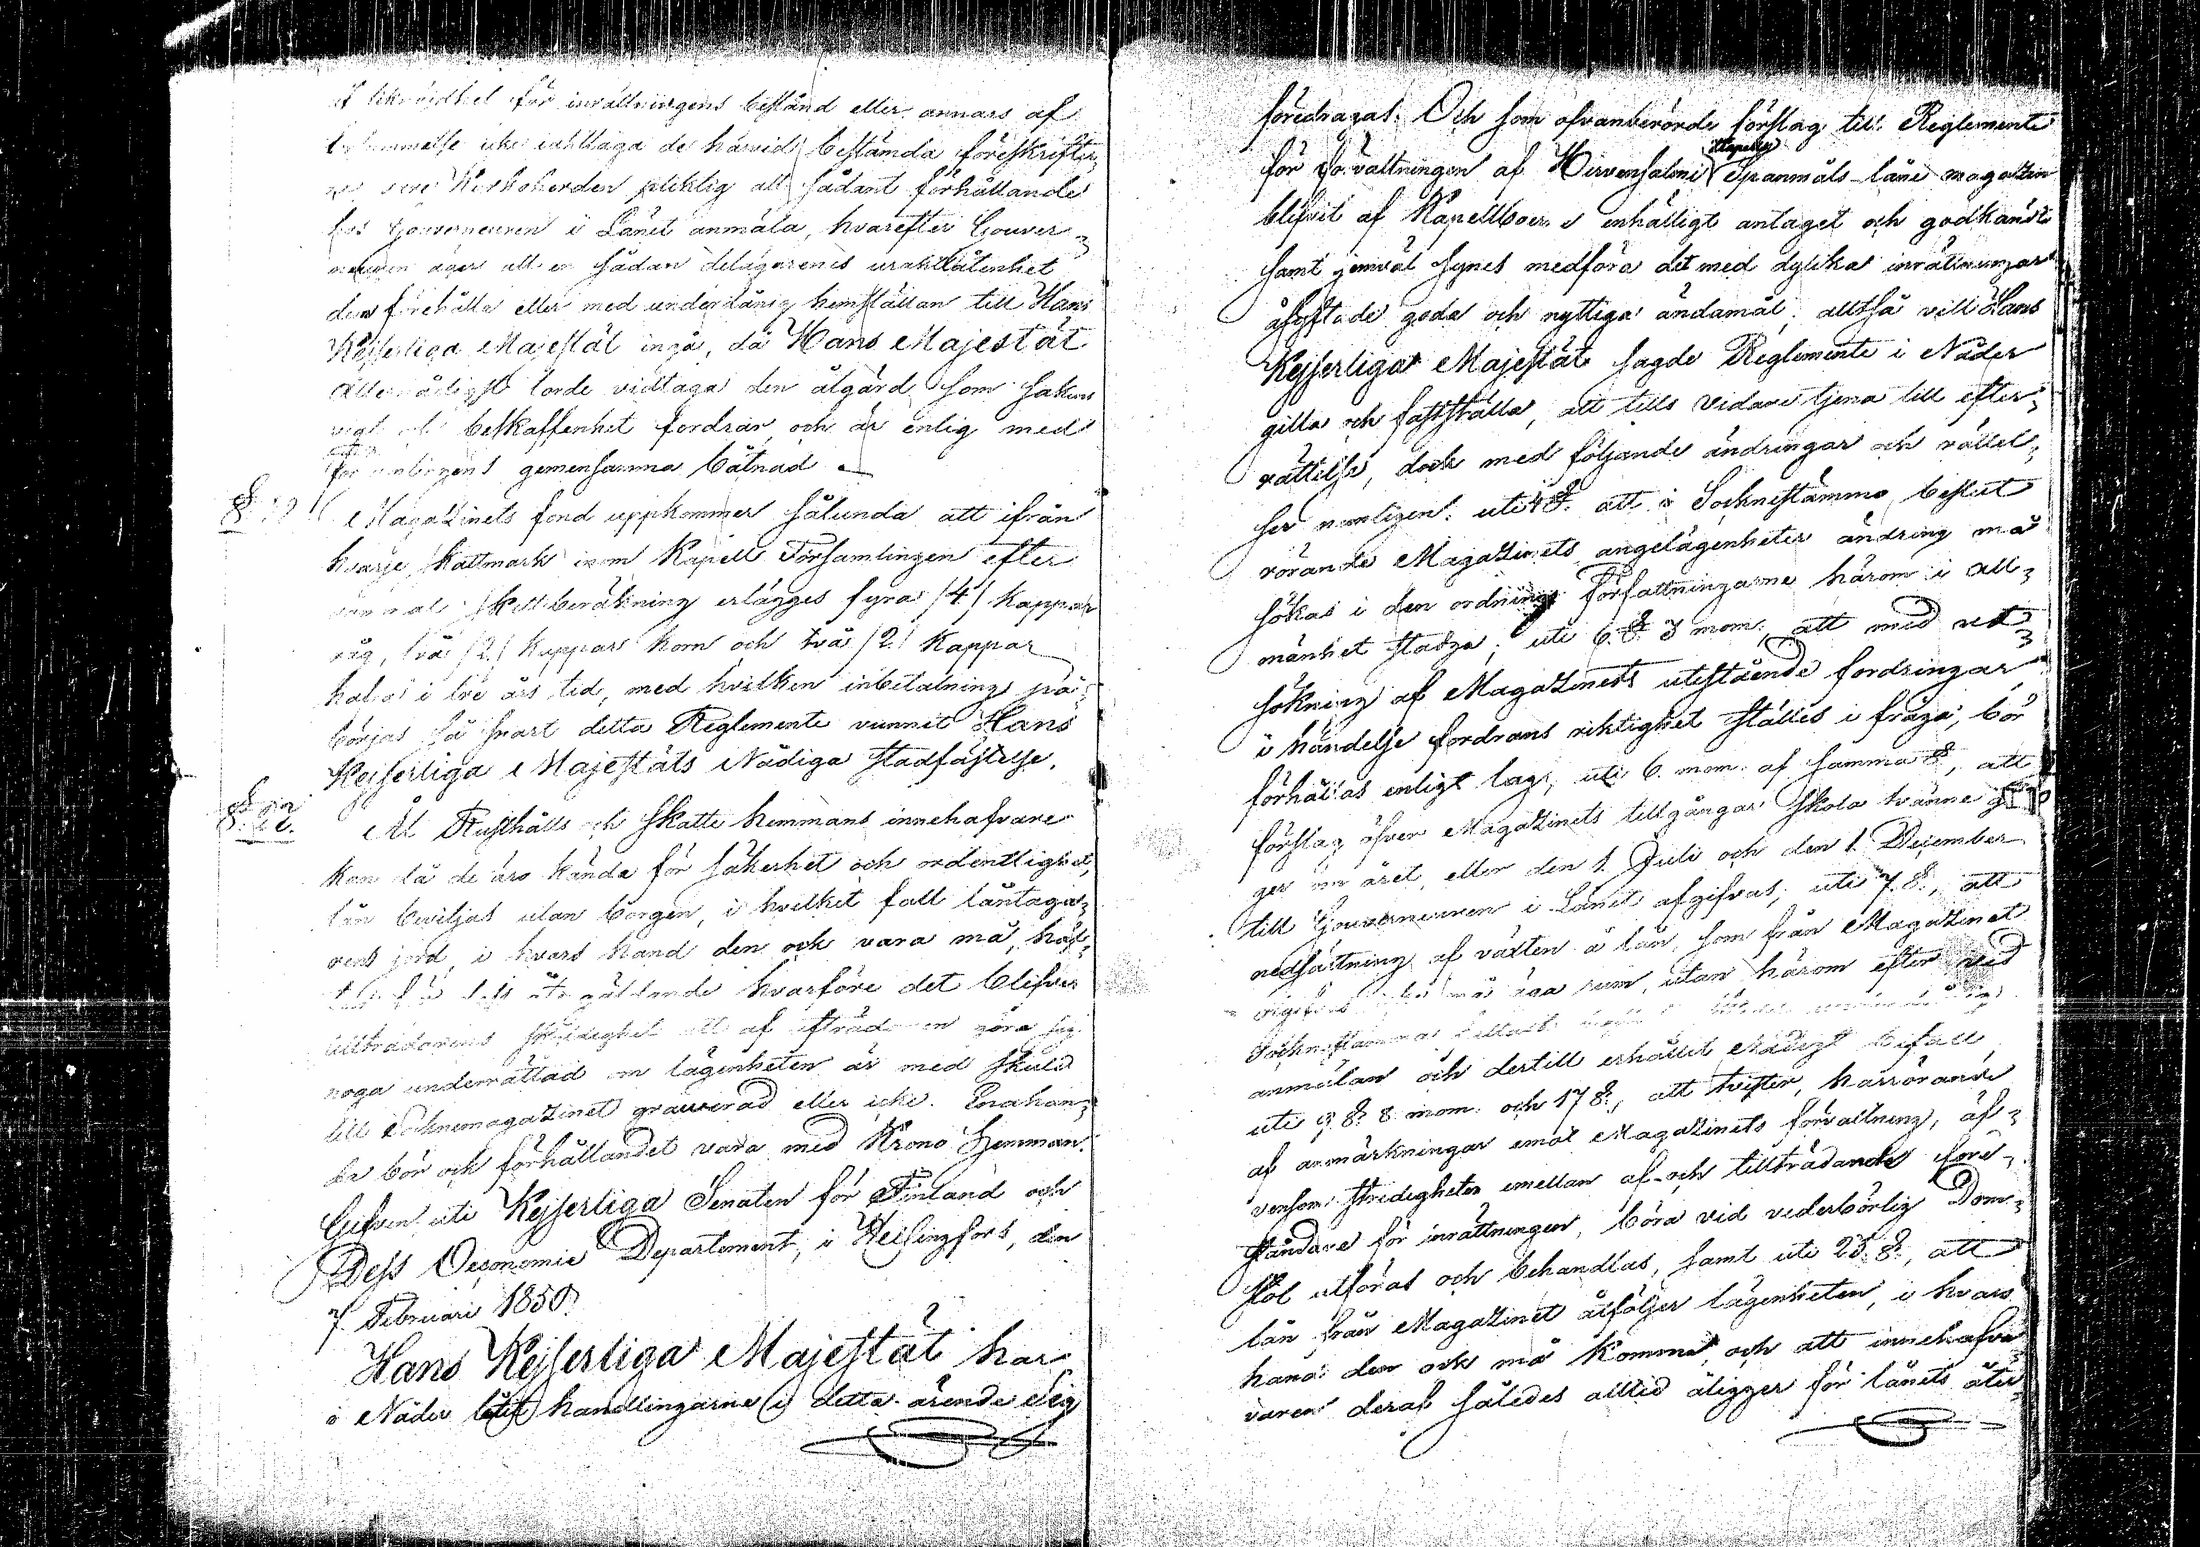 af likvärdhet för inrättningens bestånd eller annars af
icke iakttaga de härvid bestämda föreskrifter,
Kyrkoherden pliktig att sådant förhållande
hos Gouverneuren i Länet anmäla, hvarefter Gouver-
neuren äger att en sådan delägarenes uraktlåtenhet
dem förehålla eller med underdånig hemställan till Hans
Kejserliga Majestät ingå, då Hans Majestät
Allernådigst torde vidtaga den åtgärd som sakens
vigt och beskaffenhet fordrar och är enlig med
församlingens gemensamma båtnad.
§
Magazinets fond uppkommer sålunda att ifrån
hvarje skattmark inom Kapell Församlingen efter
skattberäkning erlägges fyra /4/ kappar
råg, två /2/ kappar korn och två /2/ kappar
hafra i tre års tid, med hvilken inbetalning på-
börjas så snart detta Reglemente vunnit Hans
Kejserliga Majestäts Nådiga stadfästelse.
§
Åt Rusthålls och Skatte hemmans innehafvare
kan då de äro kända för säkerhet och ordentlighet,
lån beviljas utan borgen, i hvilket fall låntaga-
rens jord, i hvars hand den ock vara må, häf-
återgäldande hvarföre det blifver
tillträdarens skyldighet att af afträdaren göra sig
noga underrättad om lägenheten är med skuld
till Socknemagazinet graverad eller icke. Enahan-
da bör ock förhållandet vara med Krono Hemman.
Gifven uti Kejserliga Senaten för Finland och
Dess Oeconomie Departement, i Helsingfors, den
7 Februari 1850.
Hans Kejserliga Majestät har
i Nåder låtit handlingarne i detta ärende sig
föredragas. Och som ofvanberörde förslag till Reglemente
Kapells
för förvaltningen af Hirvensalmi Spanmåls-låne magazin
blifvit af Kapellboerne enhälligt antaget och godkändt
samt jemväl synes medföra det med dylika inrättningar
åsyftade goda och nyttiga ändamål; alltså vill Hans
Kejserliga Majestät sagde Reglemente i Nåder
gilla och fastställa, att tills vidare tjena till efter-
rättelse, dock med följande ändringar och rättel-
ser nemligen: uti 4 §. att i Socknestämmo beslut
rörande Magazinets angelägenheter ändring må
sökas i den ordning Författningarne härom i all-
mänhet stadga; uti 6 § 3 mom. att med ut-
sökning af Magazinets utestående fordringar
i händelse fordrans riktighet ställes i fråga, bör
förhållas enligt lag; uti 6. mom. af samma §, att
förslag öfver Magazinets tillgångar skola tvänne gån-
ger om året, eller den 1 Juli och den 1 December
till Gouverneuren i Länet afgifvas; uti 7 §., att
nedsättning af växten å lån, som från Magazinet
utgifvas icke må äga rum, utan härom efter vid
Sockenstämma
anmälan och dertill erhållit Nådigt bifall,
uti 9 § 8 mom. och 17 §., att tvister, härrörande
af anmärkningar emot Magazinets förvaltning, äf-
vensom stridigheter emellan af- och tillträdande före-
ståndare för inrättningen, böra vid vederbörlig Dom-
stol utföras och behandlas, samt uti 23 §., att
lån från Magazinet åtföljer lägenheten, i hvars
hand den ock må komma och att innehafva-
ren deraf således alltid åligger för lånets åter-